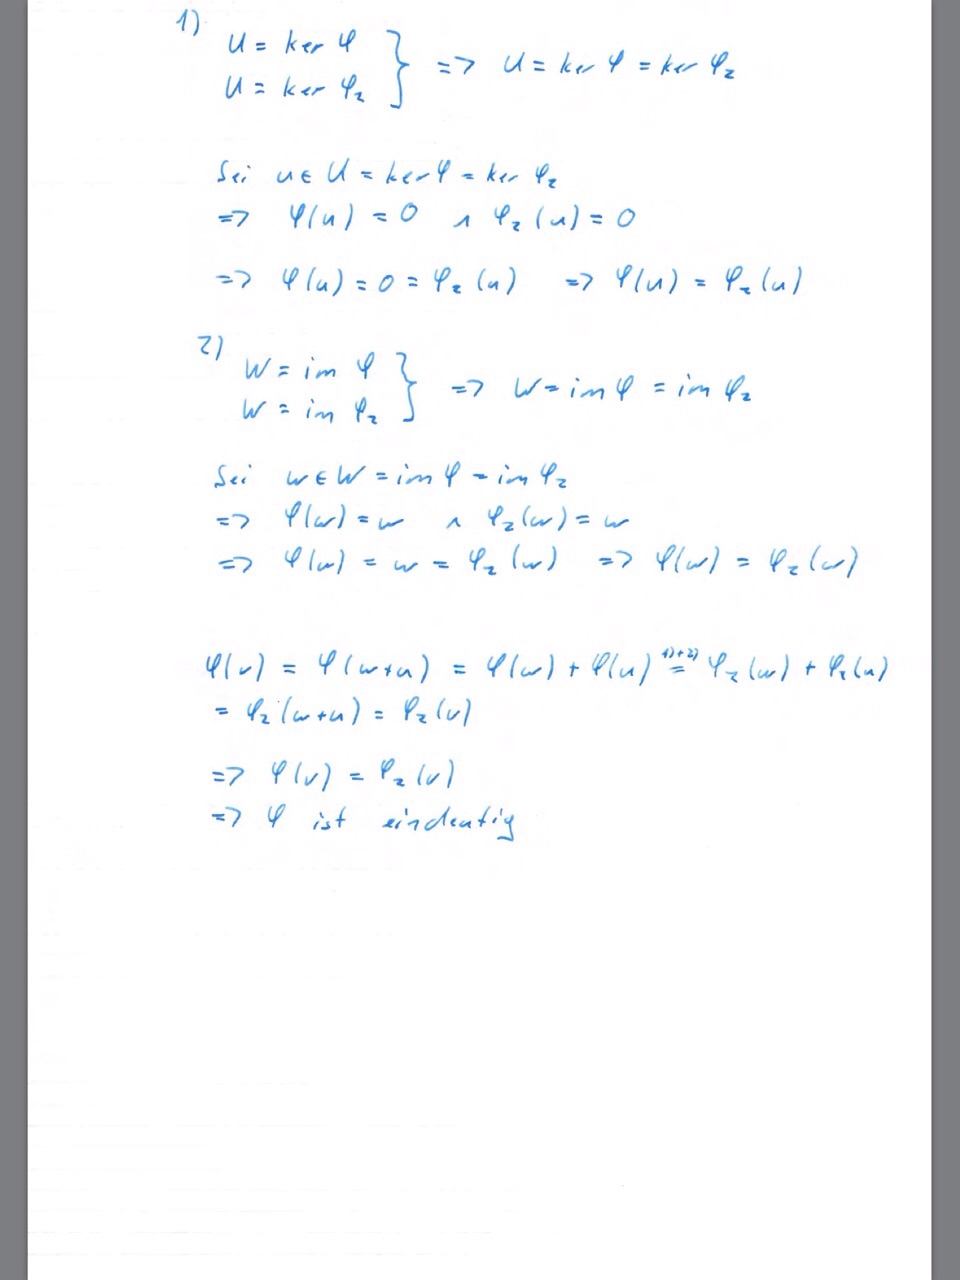 1)
U = ker φ
U = ker φ₂ } => U = ker φ = ker φ₂
Sei u ∈ U = ker φ = ker φ₂
=> φ(u) = 0 ∧ φ₂(u) = 0
=> φ(u) = 0 = φ₂(u) => φ(u) = φ₂(u)
2)
W = im φ
W = im φ₂ } => W = im φ = im φ₂
Sei w ∈ W = im φ = im φ₂
=> φ(w) = w ∧ φ₂(w) = w
=> φ(w) = w = φ₂(w) => φ(w) = φ₂(w)
φ(v) = φ(w+u) = φ(w) + φ(u) =^{1)+2)} φ₂(w) + φ₂(u)
= φ₂(w+u) = φ₂(v)
=> φ(v) = φ₂(v)
=> φ ist eindeutig